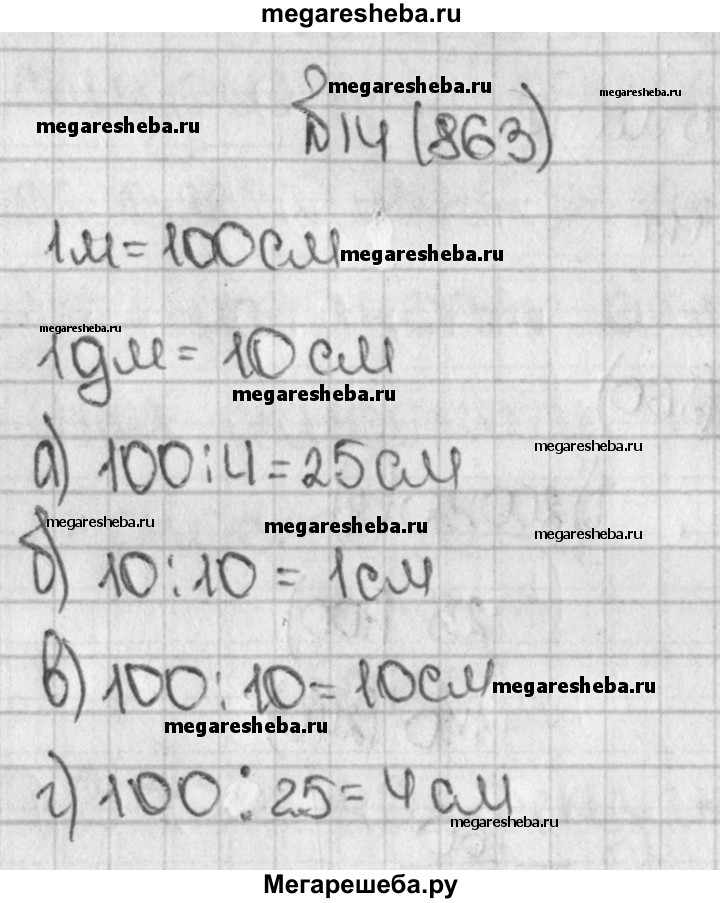 megaresheba.ru
megaresheba.ru
megaresheba.ru
megaresheba.ru
№14 (863)
1м=100см
megaresheba.ru
megaresheba.ru
1дм=10см
megaresheba.ru
а) 100:4=25см
megaresheba.ru
megaresheba.ru
megaresheba.ru
megaresheba.ru
б) 10:10=1см
в) 100:10=10см
megaresheba.ru
megaresheba.ru
г) 100:25=4см
megaresheba.ru
Мегарешеба.ру